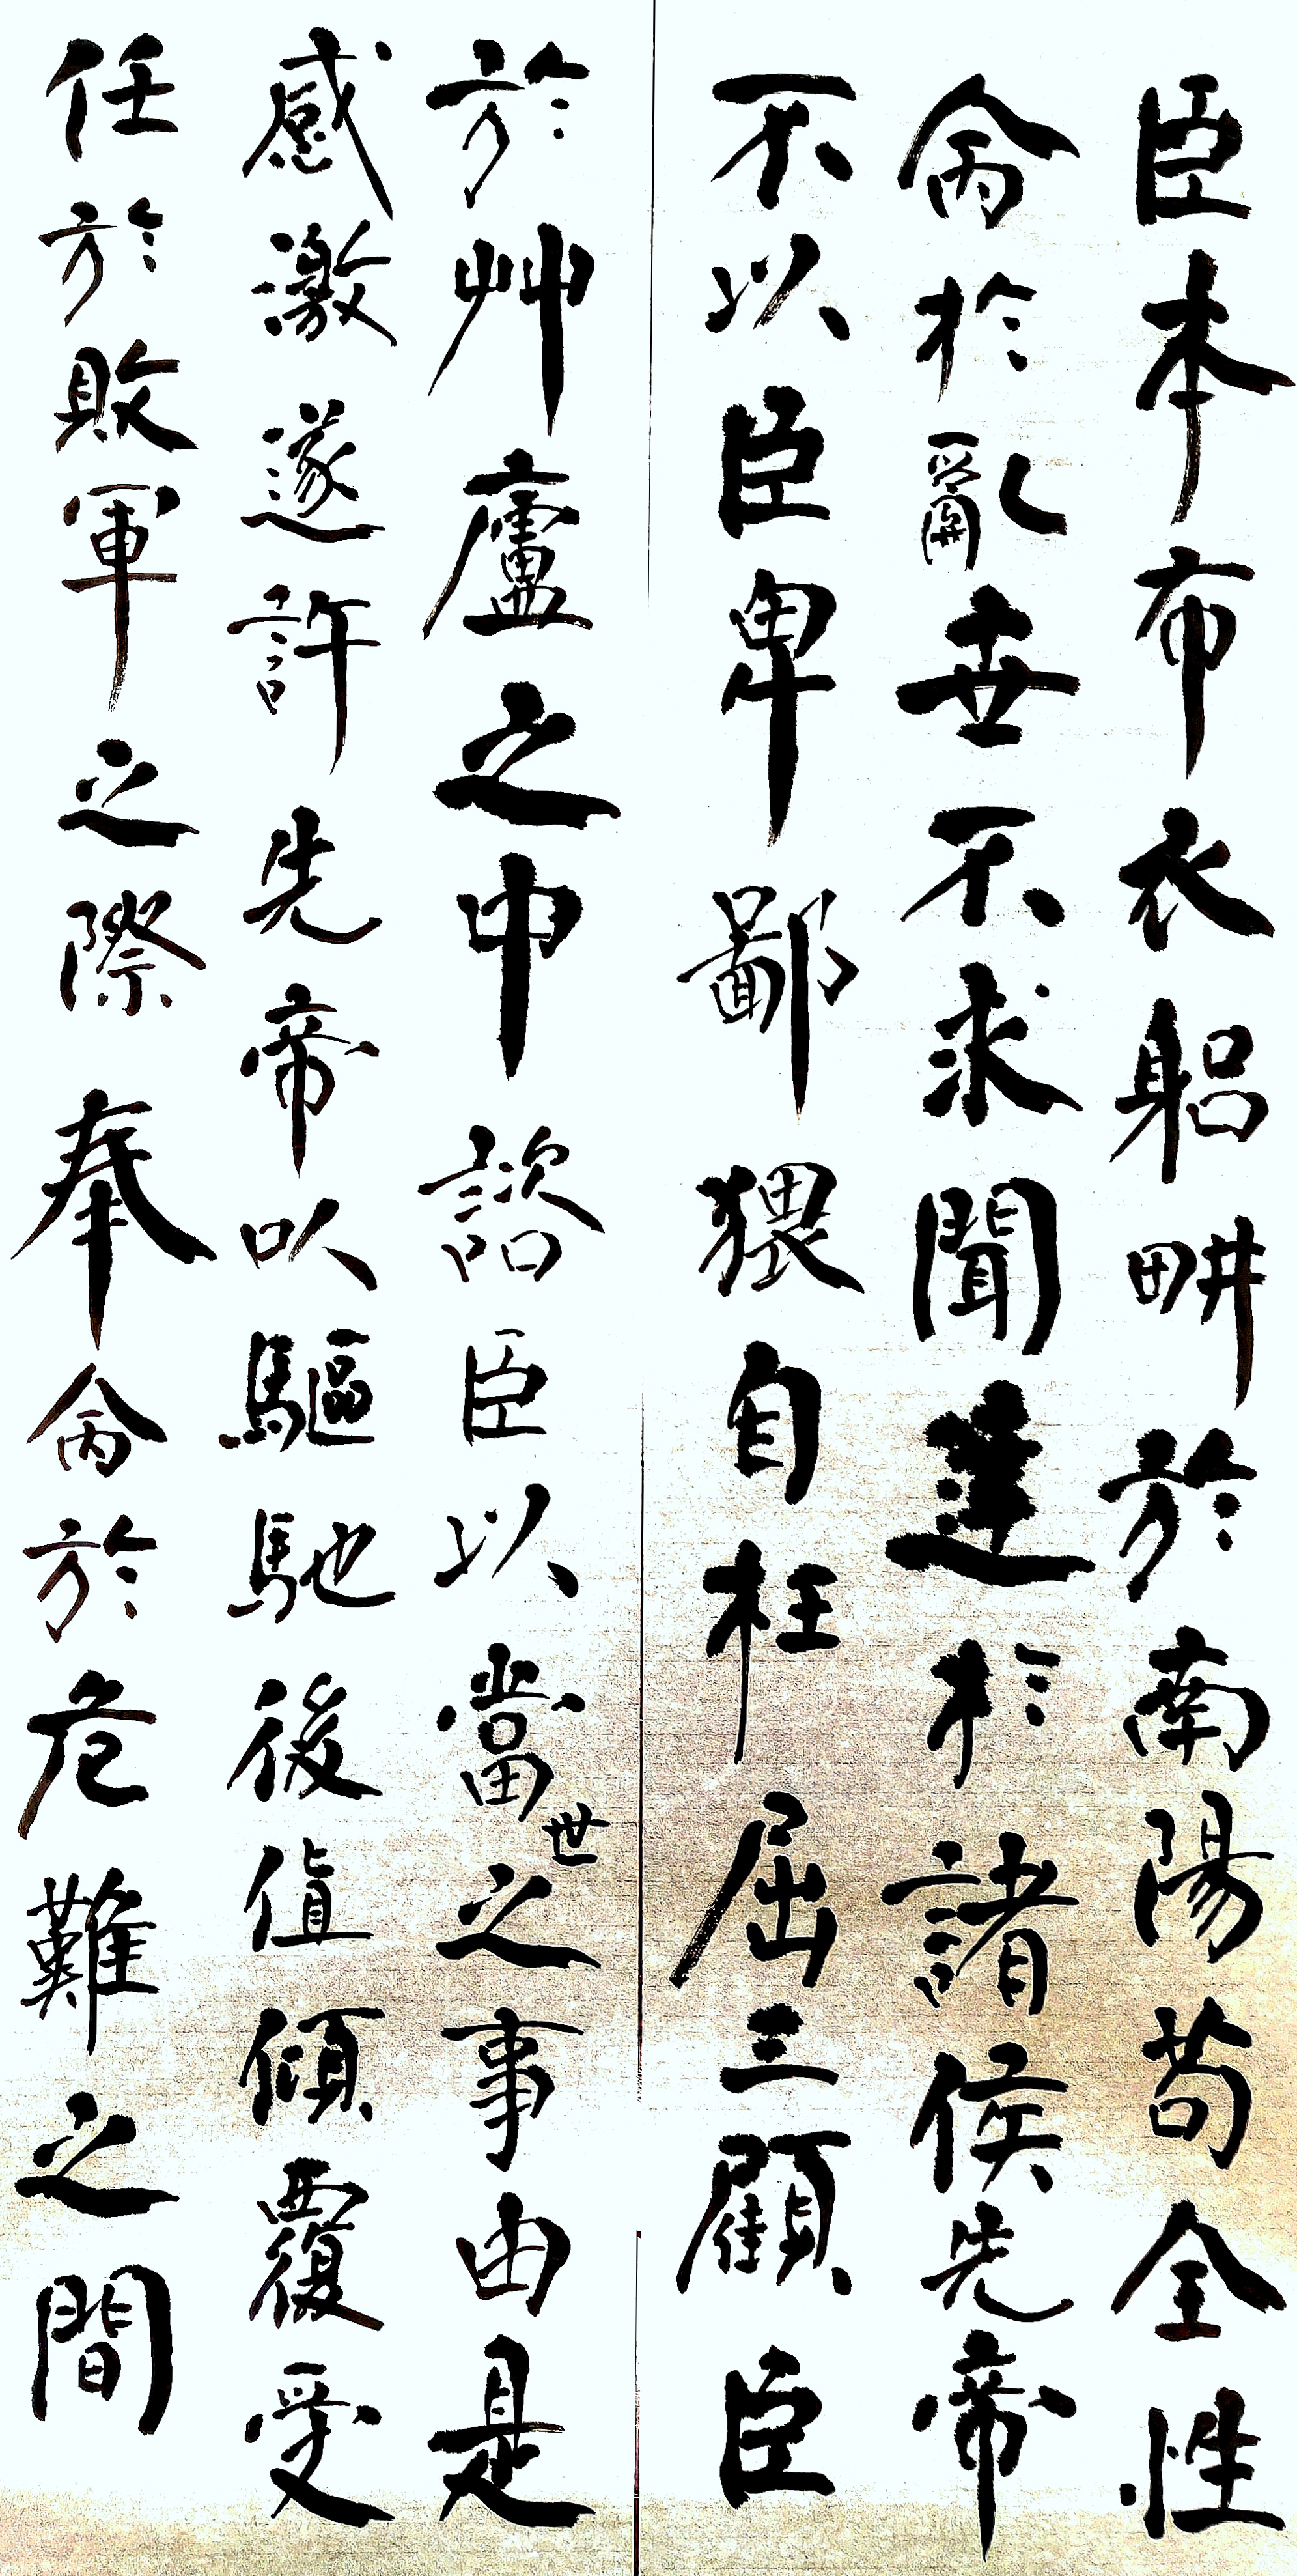 臣本布衣躳畊於南陽苟全性
命於亂世不求聞達於諸侯先帝
不以臣卑鄙猥自枉屈三顧臣
於艸廬之中諮臣以當世之事由是
感激遂許先帝以驅馳後值傾覆受
任於敗軍之際奉命於危難之間